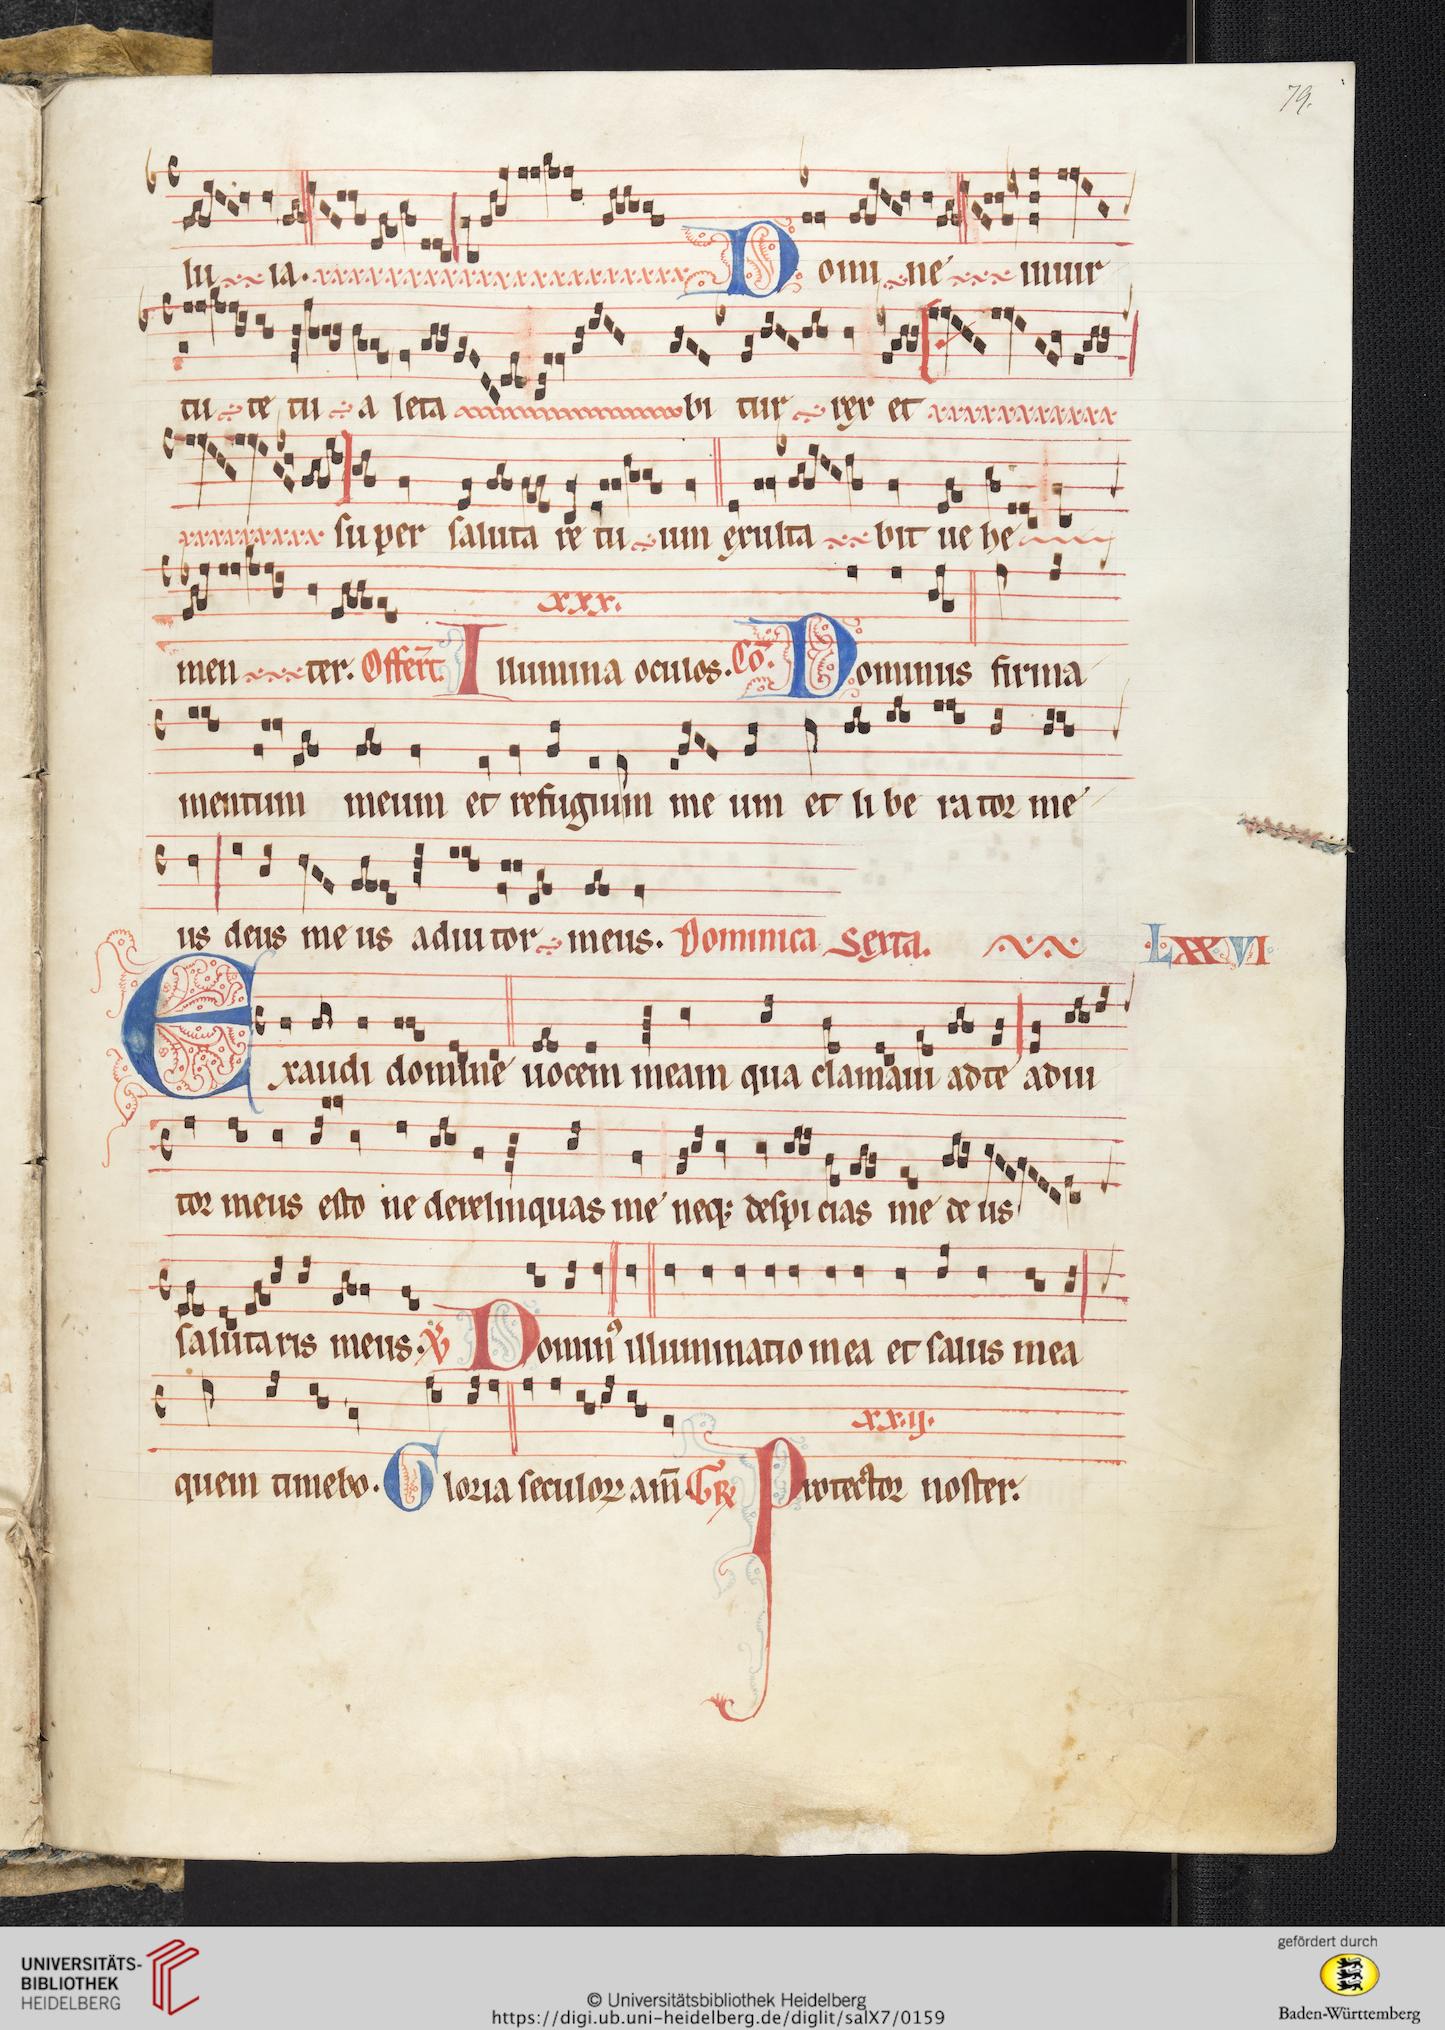 79.
lu ia. Domine in uir
tu te tu a leta bi tur rex et
super saluta re tu um exulta bit ue he
xxx.
men ter. Offert. Illumina oculos. Co. Dominus firma
mentum meum et refugium me um et li be rator me
us deus me us adiu tor meus. Dominica Sexta. LXXVI
Exaudi domine uocem meam qua clamaui ad te adiu
tor meus esto ne derelinquas me neq; despi cias me de us
salutaris meus. V Domin9 illuminatio mea et salus mea
xx.ij.
quem timebo. Gloria seculorum am̄ Gr Protector noster.
UNIVERSITÄTS-
BIBLIOTHEK
HEIDELBERG
© Universitätsbibliothek Heidelberg
https://digi.ub.uni-heidelberg.de/diglit/salX7/0159
gefördert durch
Baden-Württemberg